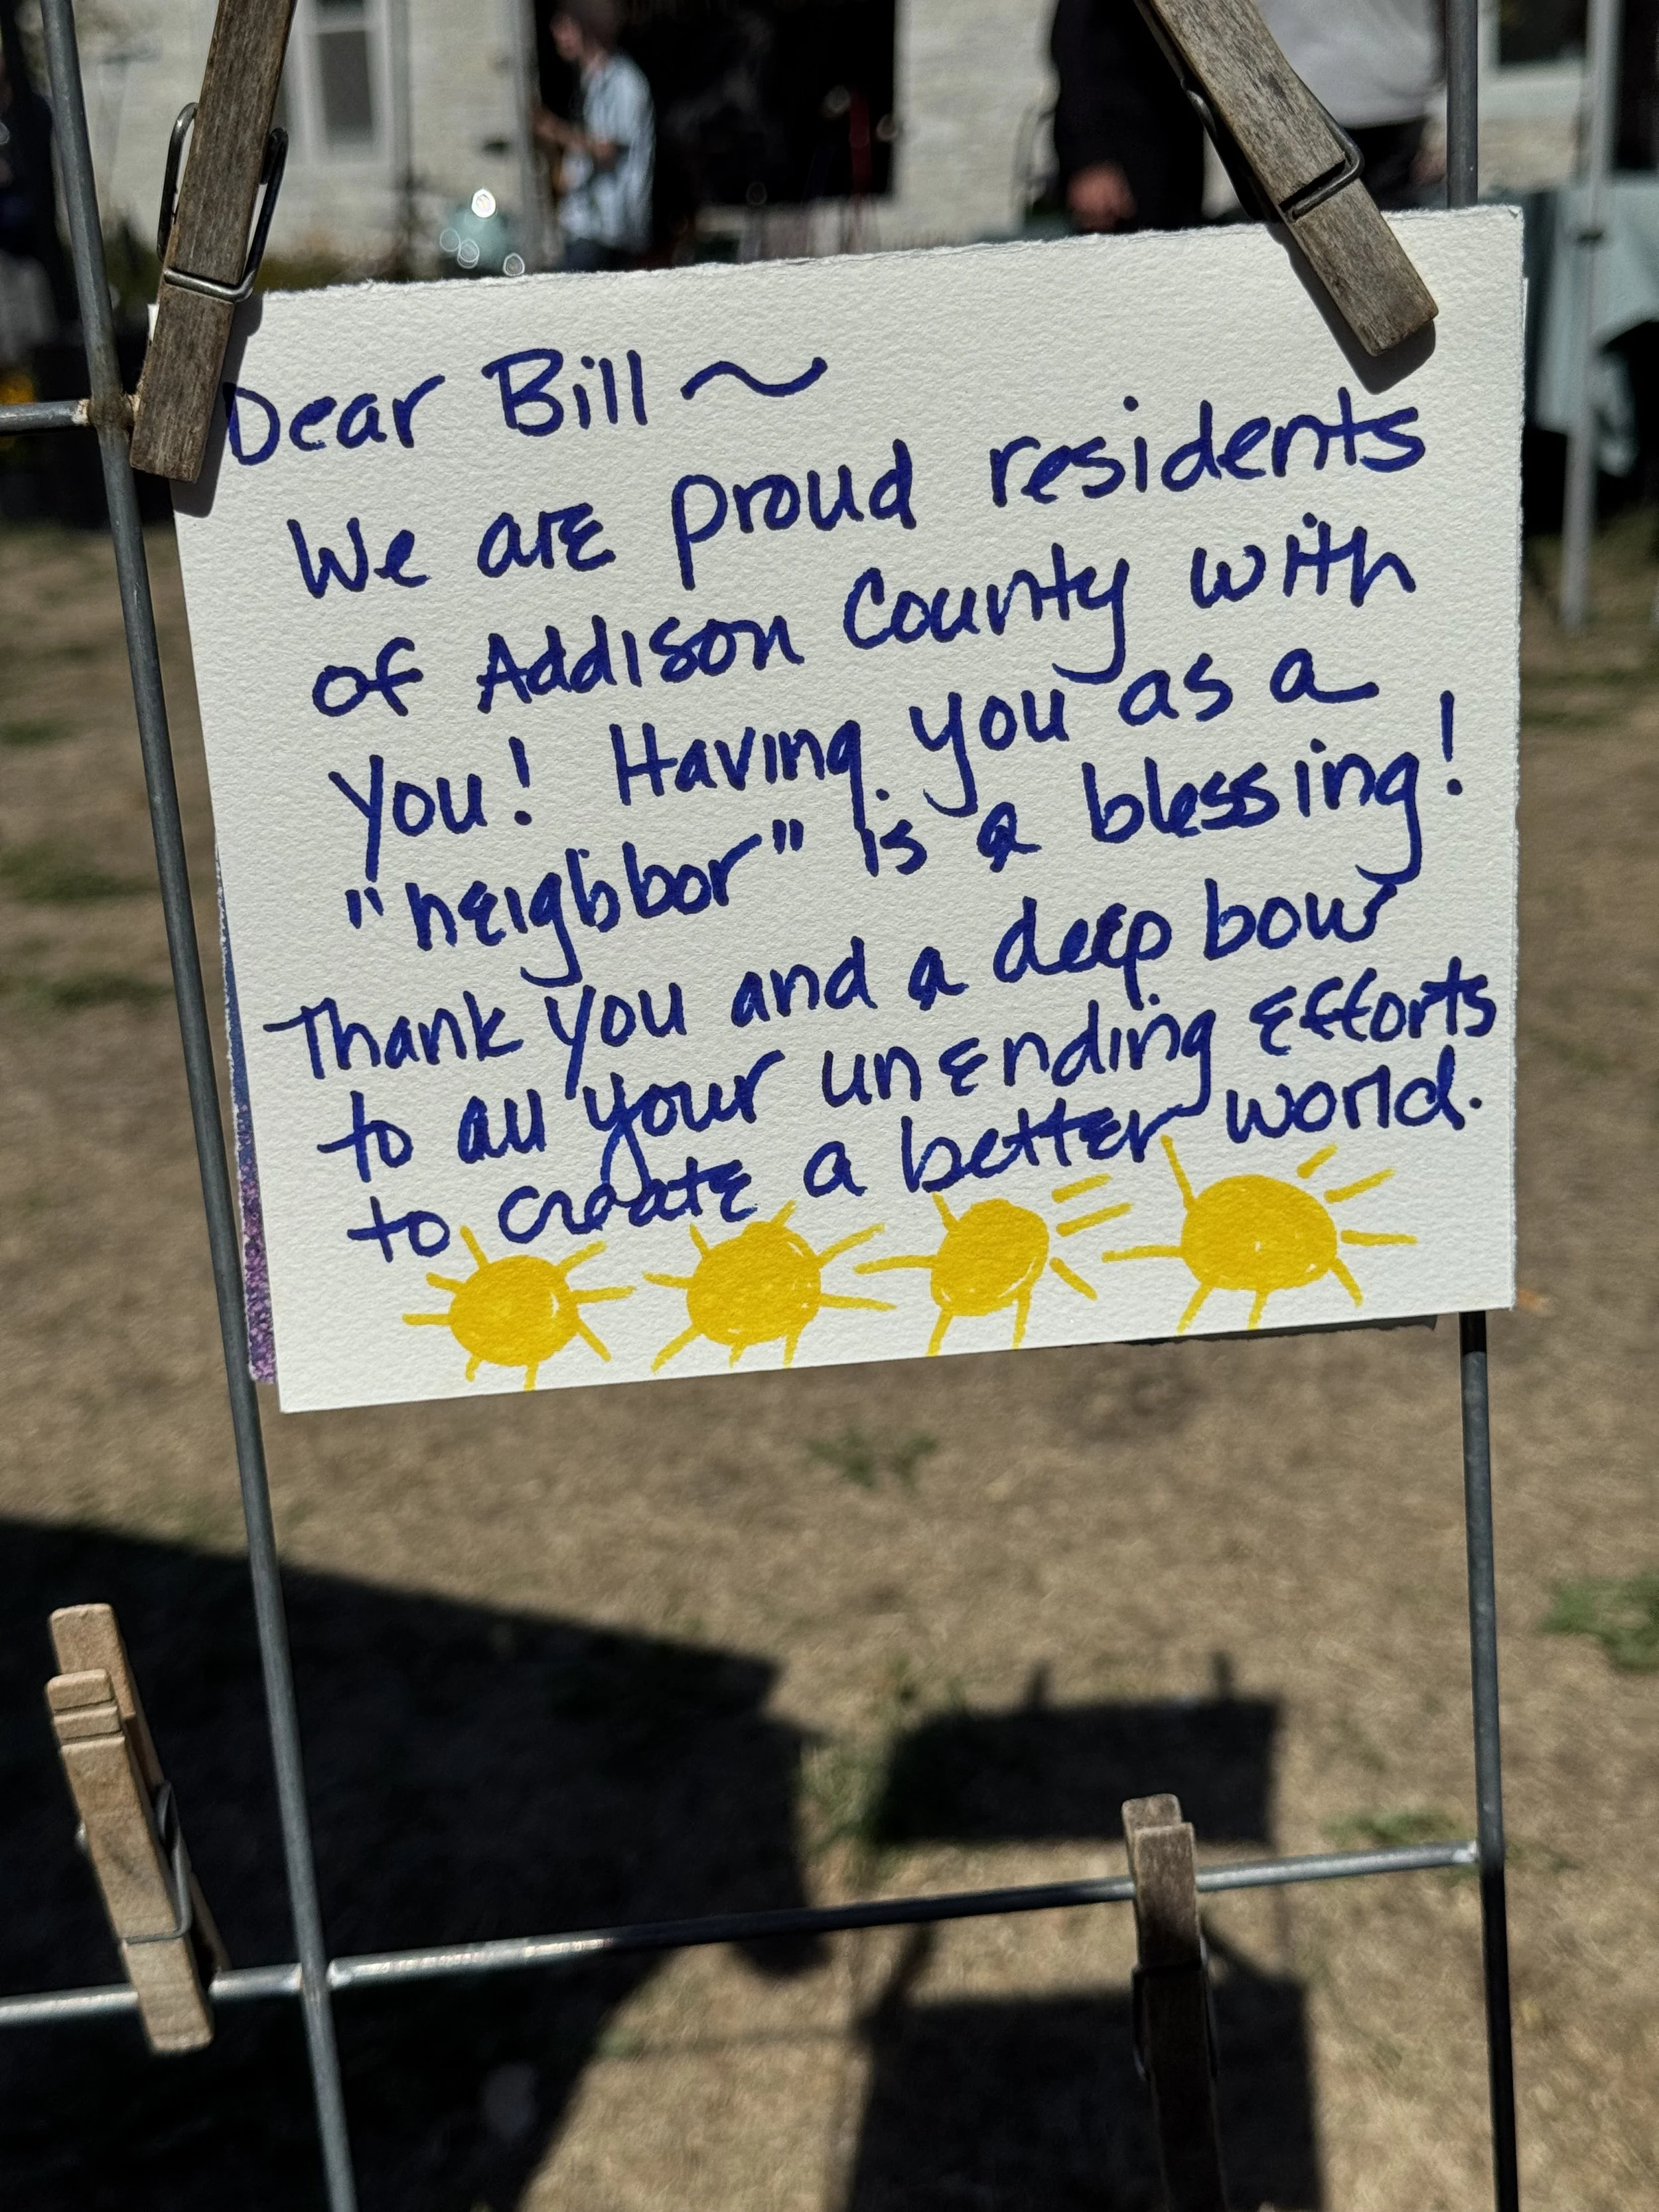 Dear Bill ~
We are proud residents
of Addison County with
you! Having you as a
"neighbor" is a blessing!
Thank you and a deep bow
to all your unending efforts
to create a better world.